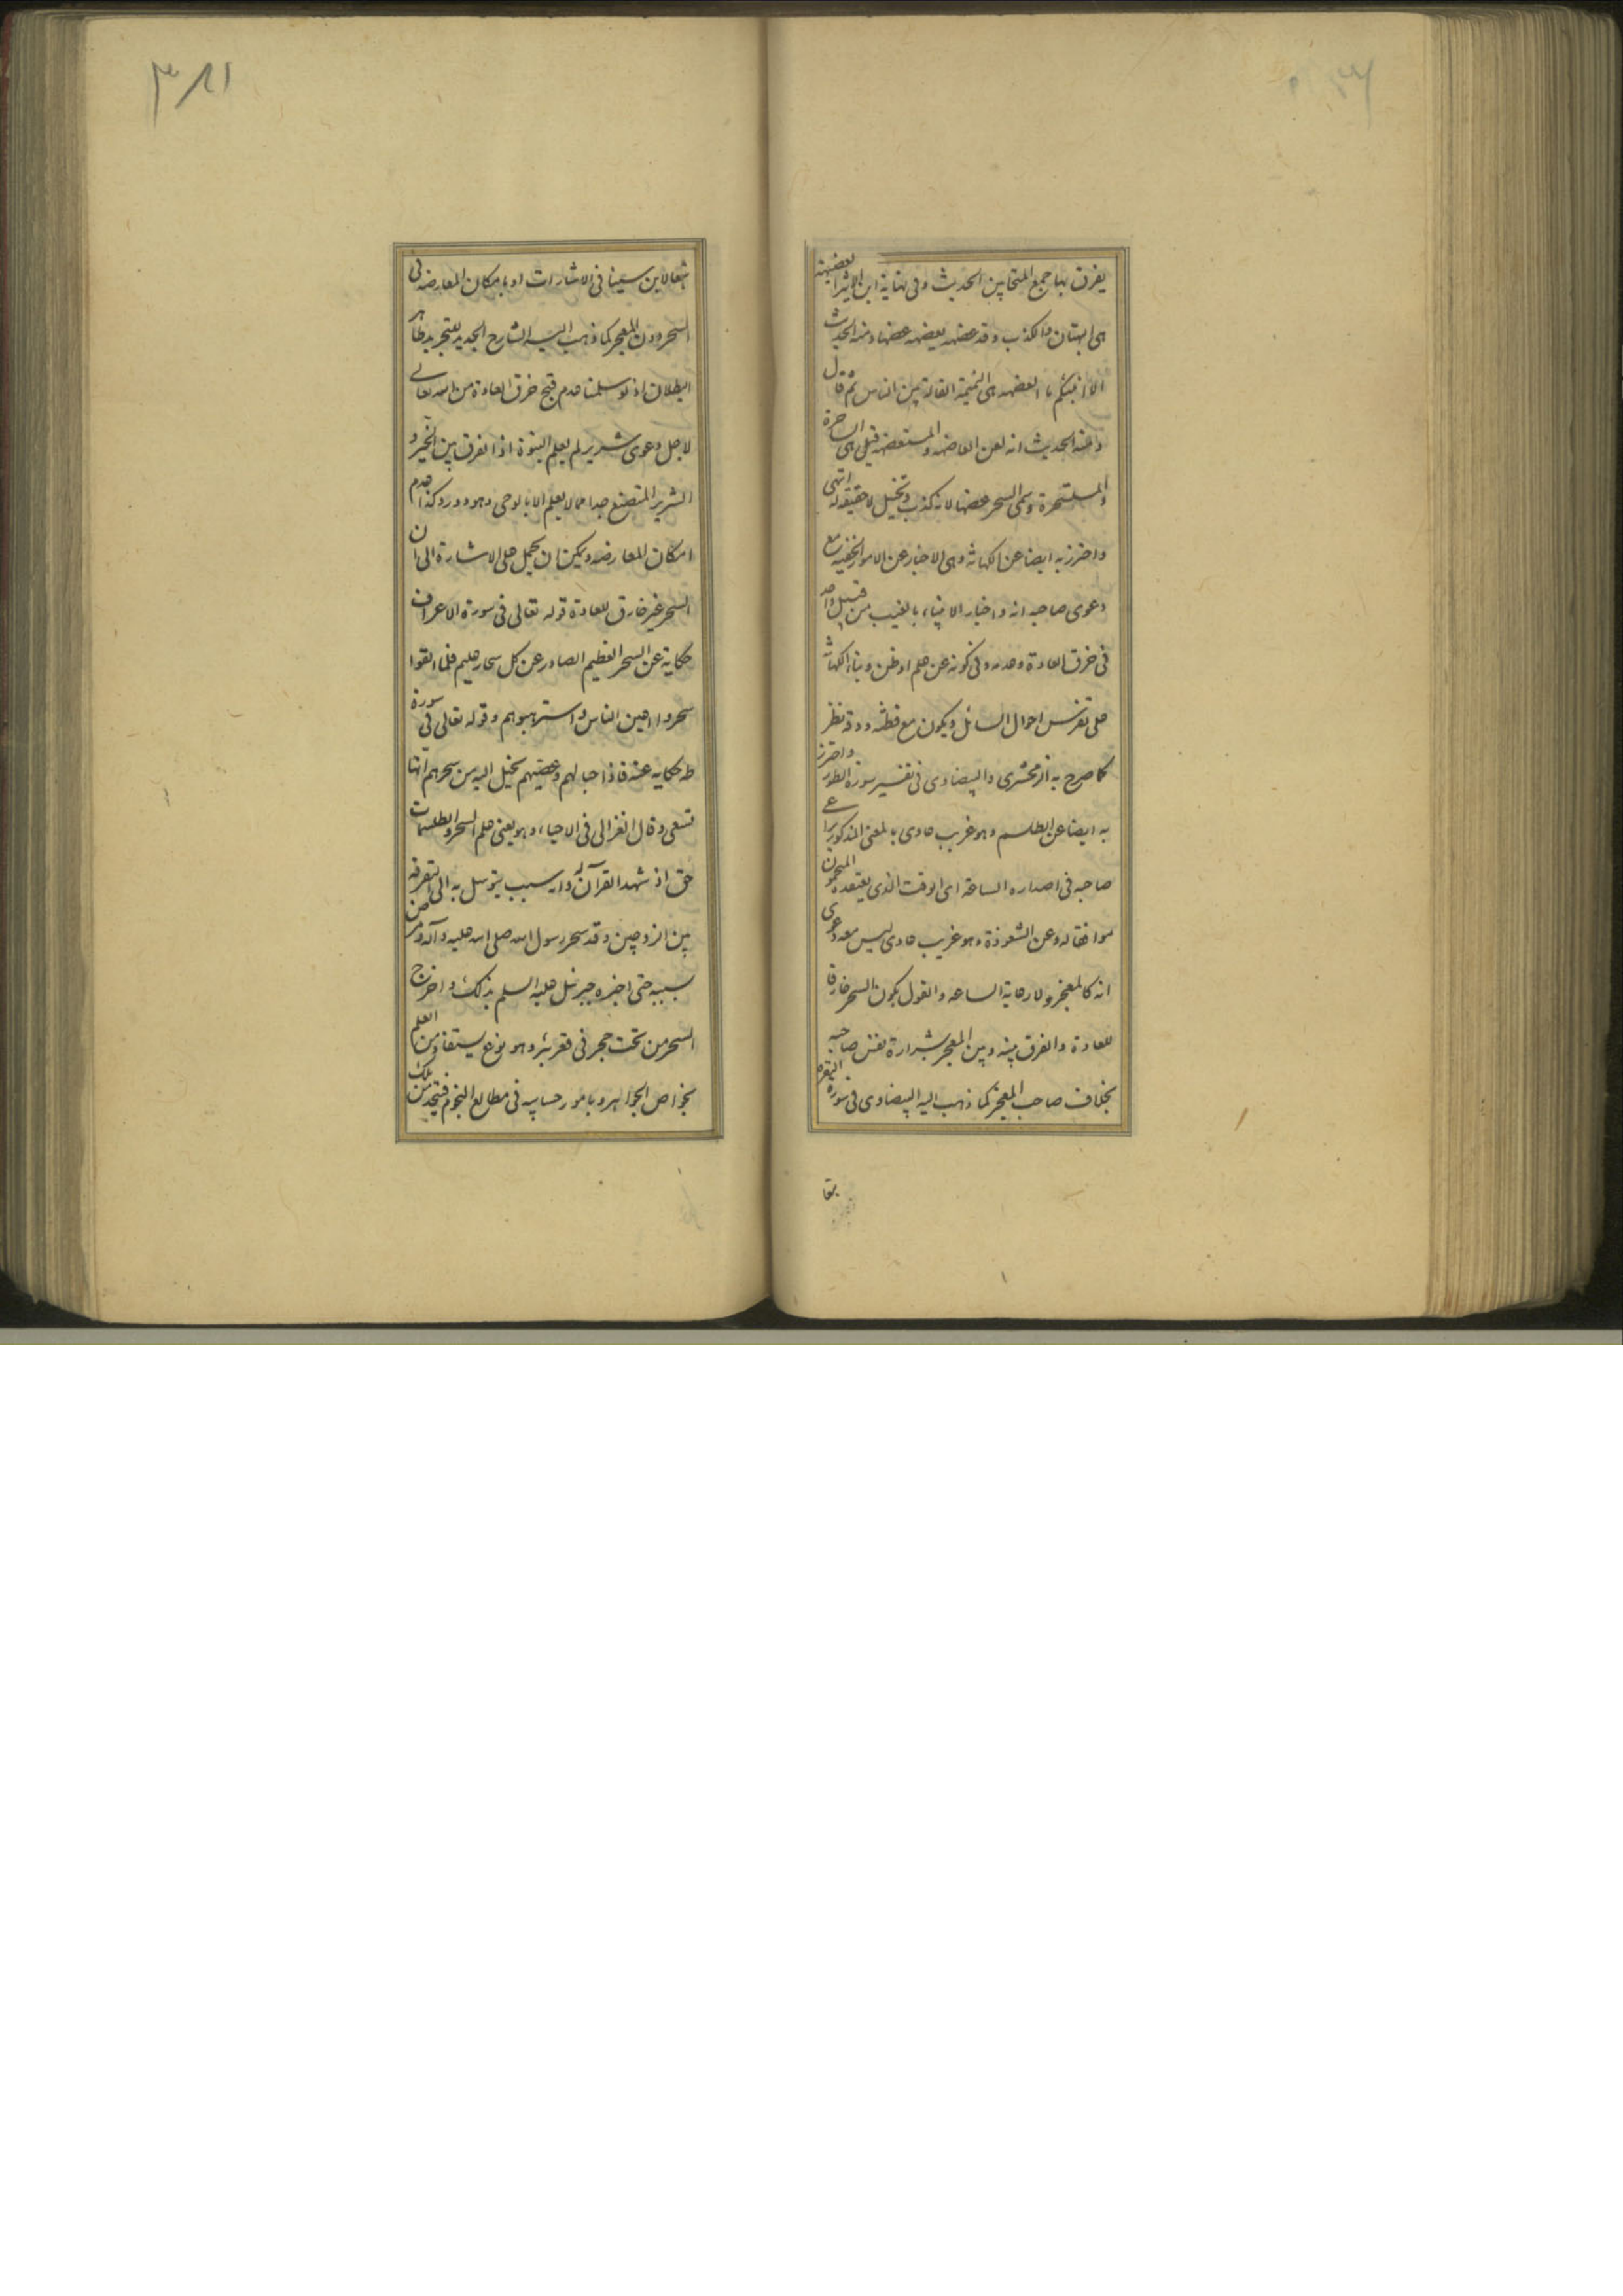 يفرق بها جمع المتحابين الحديث وفى نهاية ابن الاثير العضيهة
هى البهتان والكذب وقد عضهه يعضهه عضها ومنه الحديث
الا انبئكم ما العضه هى النميمة القالة بين الناس ثم قال
ومنه الحديث انه لعن العاضهه والمستعضهه قيل هى الساحرة
والمستسحرة وسمى السحر عضها لانه كذب وتخيل لا حقيقة له انتهى
واحترز به ايضا عن الكهانة وهى الاخبار عن الامور الخفيه مع
دعوى صاحبه انه واخبار الانبياء بالغيب من قبيل واحد
فى خرق العادة وعدمه وفى كونه عن علم او ظن وبناء الكهانة
على تفرس احوال السائل ويكون مع فطنه ودقة نظر
كما صرح به الزمخشرى والبيضاوى فى تفسير سورة الطور واحترز
به ايضا عن الطلسم وهو غريب عادى بالمعنى المذكور يراعى
صاحبه فى اصداره الساعة اى الوقت الذى يعتقده المنجمون
موافقا له وعن الشعوذة وهو غريب عادى ليس معه دعوى
انه كالمعجز ولا رعاية الساعه والقول بكون السحر خارقا
للعادة والفرق بينه وبين المعجز بشرارة نفس صاحبه
بخلاف صاحب المعجز كما ذهب اليه البيضاوى فى سورة البقره
تبعا
٣٨١
تبعا لابن سينا فى الاشارات او بامكان المعارضه فى
السحر دون المعجز كما ذهب اليه الشارح الجديد للتجريد ظاهر
البطلان اذ لو سلمنا عدم قبح خرق العادة من الله تعالى
لاجل دعوى شرير لم يعلم النبوة اذ الفرق بين الخير و
الشرير المتصنع جدا مما لا يعلم الا بالوحى وهو دور وكذا عدم
امكان المعارضه ويمكن ان يحمل على الاشارة الى ان
السحر غير خارق للعادة قوله تعالى فى سورة الاعراف
حكاية عن السحر العظيم الصادر عن كل سحار عليم فلما القوا
سحروا اعين الناس واسترهبوهم وقوله تعالى فى سورة
طه حكاية عنه فاذا حبالهم وعصيهم يخيل اليه من سحرهم انها
تسعى وقال الغزالى فى الاحياء وهو يعنى علم السحر والطلسمات
حق اذ شهد القرآن له وانه سبب يتوسل به الى التفرقه
بين الزوجين وقد سحر رسول الله صلى الله عليه وآله ومرض
بسببه حتى اخبره جبرئيل عليه السلم بذلك واخرج
السحر من تحت حجر فى قعر بئر وهو نوع يستفاد من العلم
بخواص الجواهر وبامور حسابيه فى مطالع النجوم فيتخذ من تلك